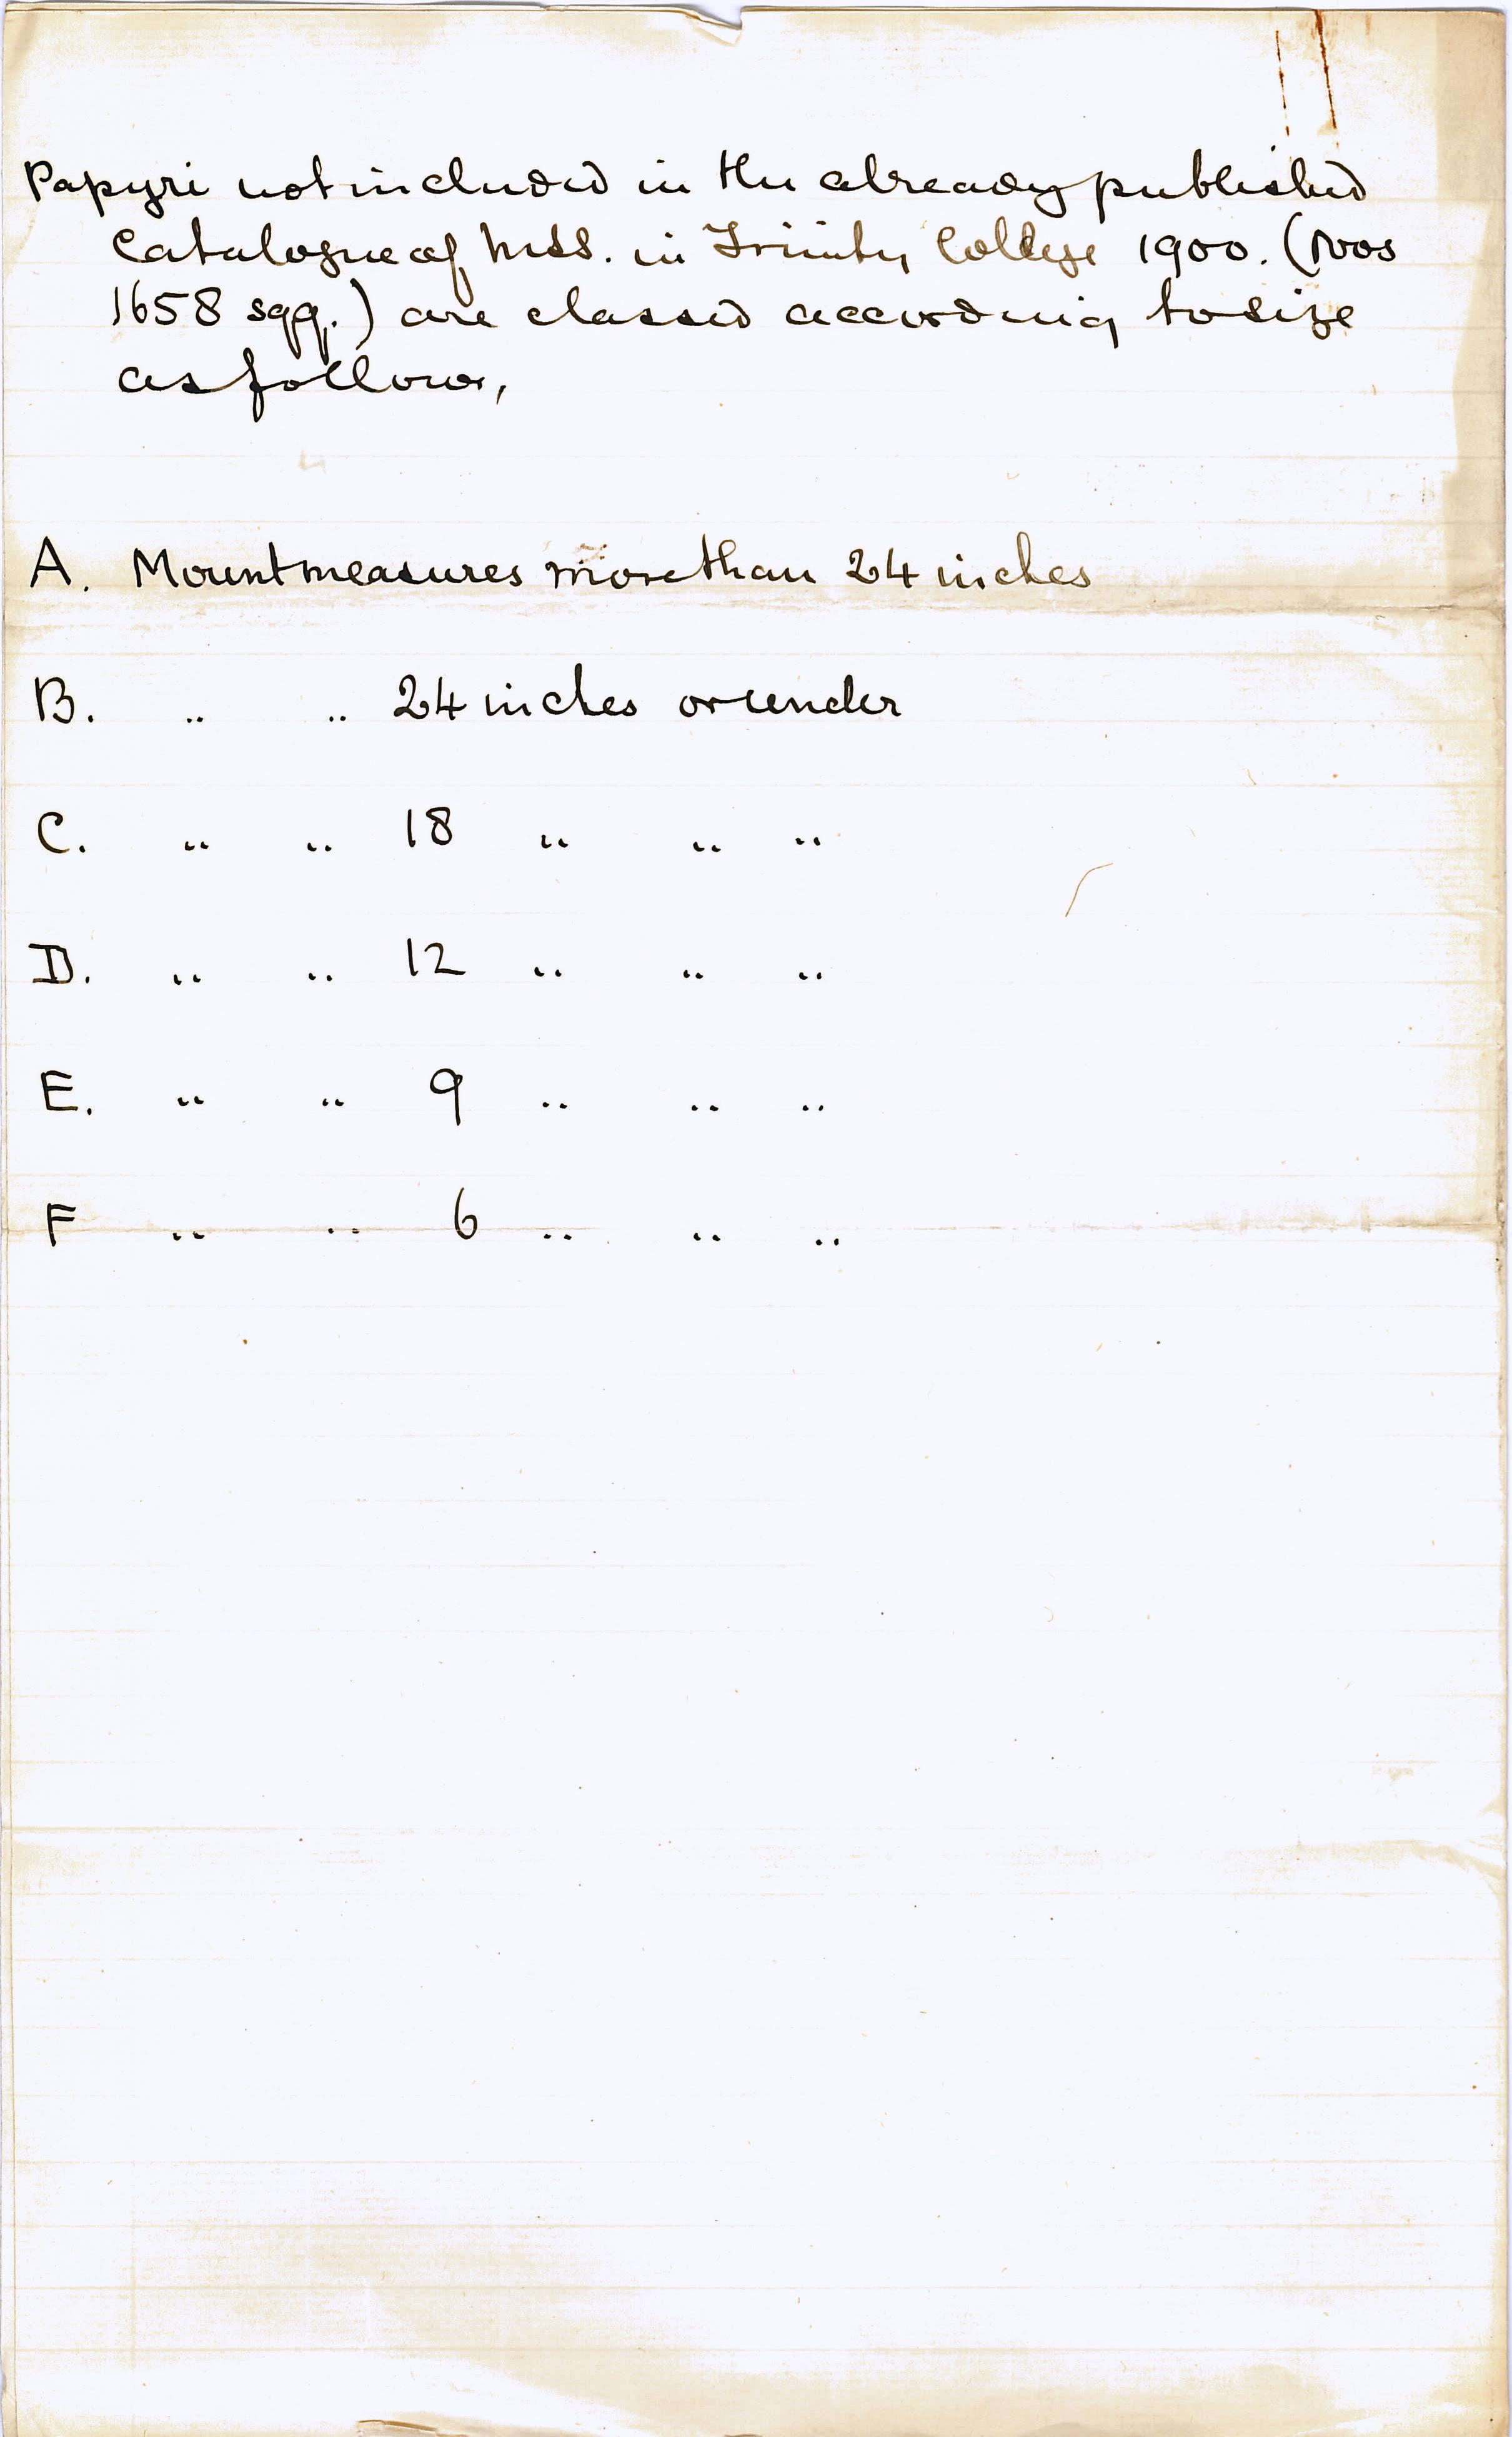 Papyri not included in the already published
Catalogue of Mss. in Trinity College 1900. (Nos
1658 sqq.) are classed according to size
as follows,
A. Mount measures more than 24 inches
B. .. .. 24 inches or under
C. .. .. 18 .. .. ..
D. .. .. 12 .. .. ..
E. .. .. 9 .. .. ..
F .. .. 6 .. .. ..